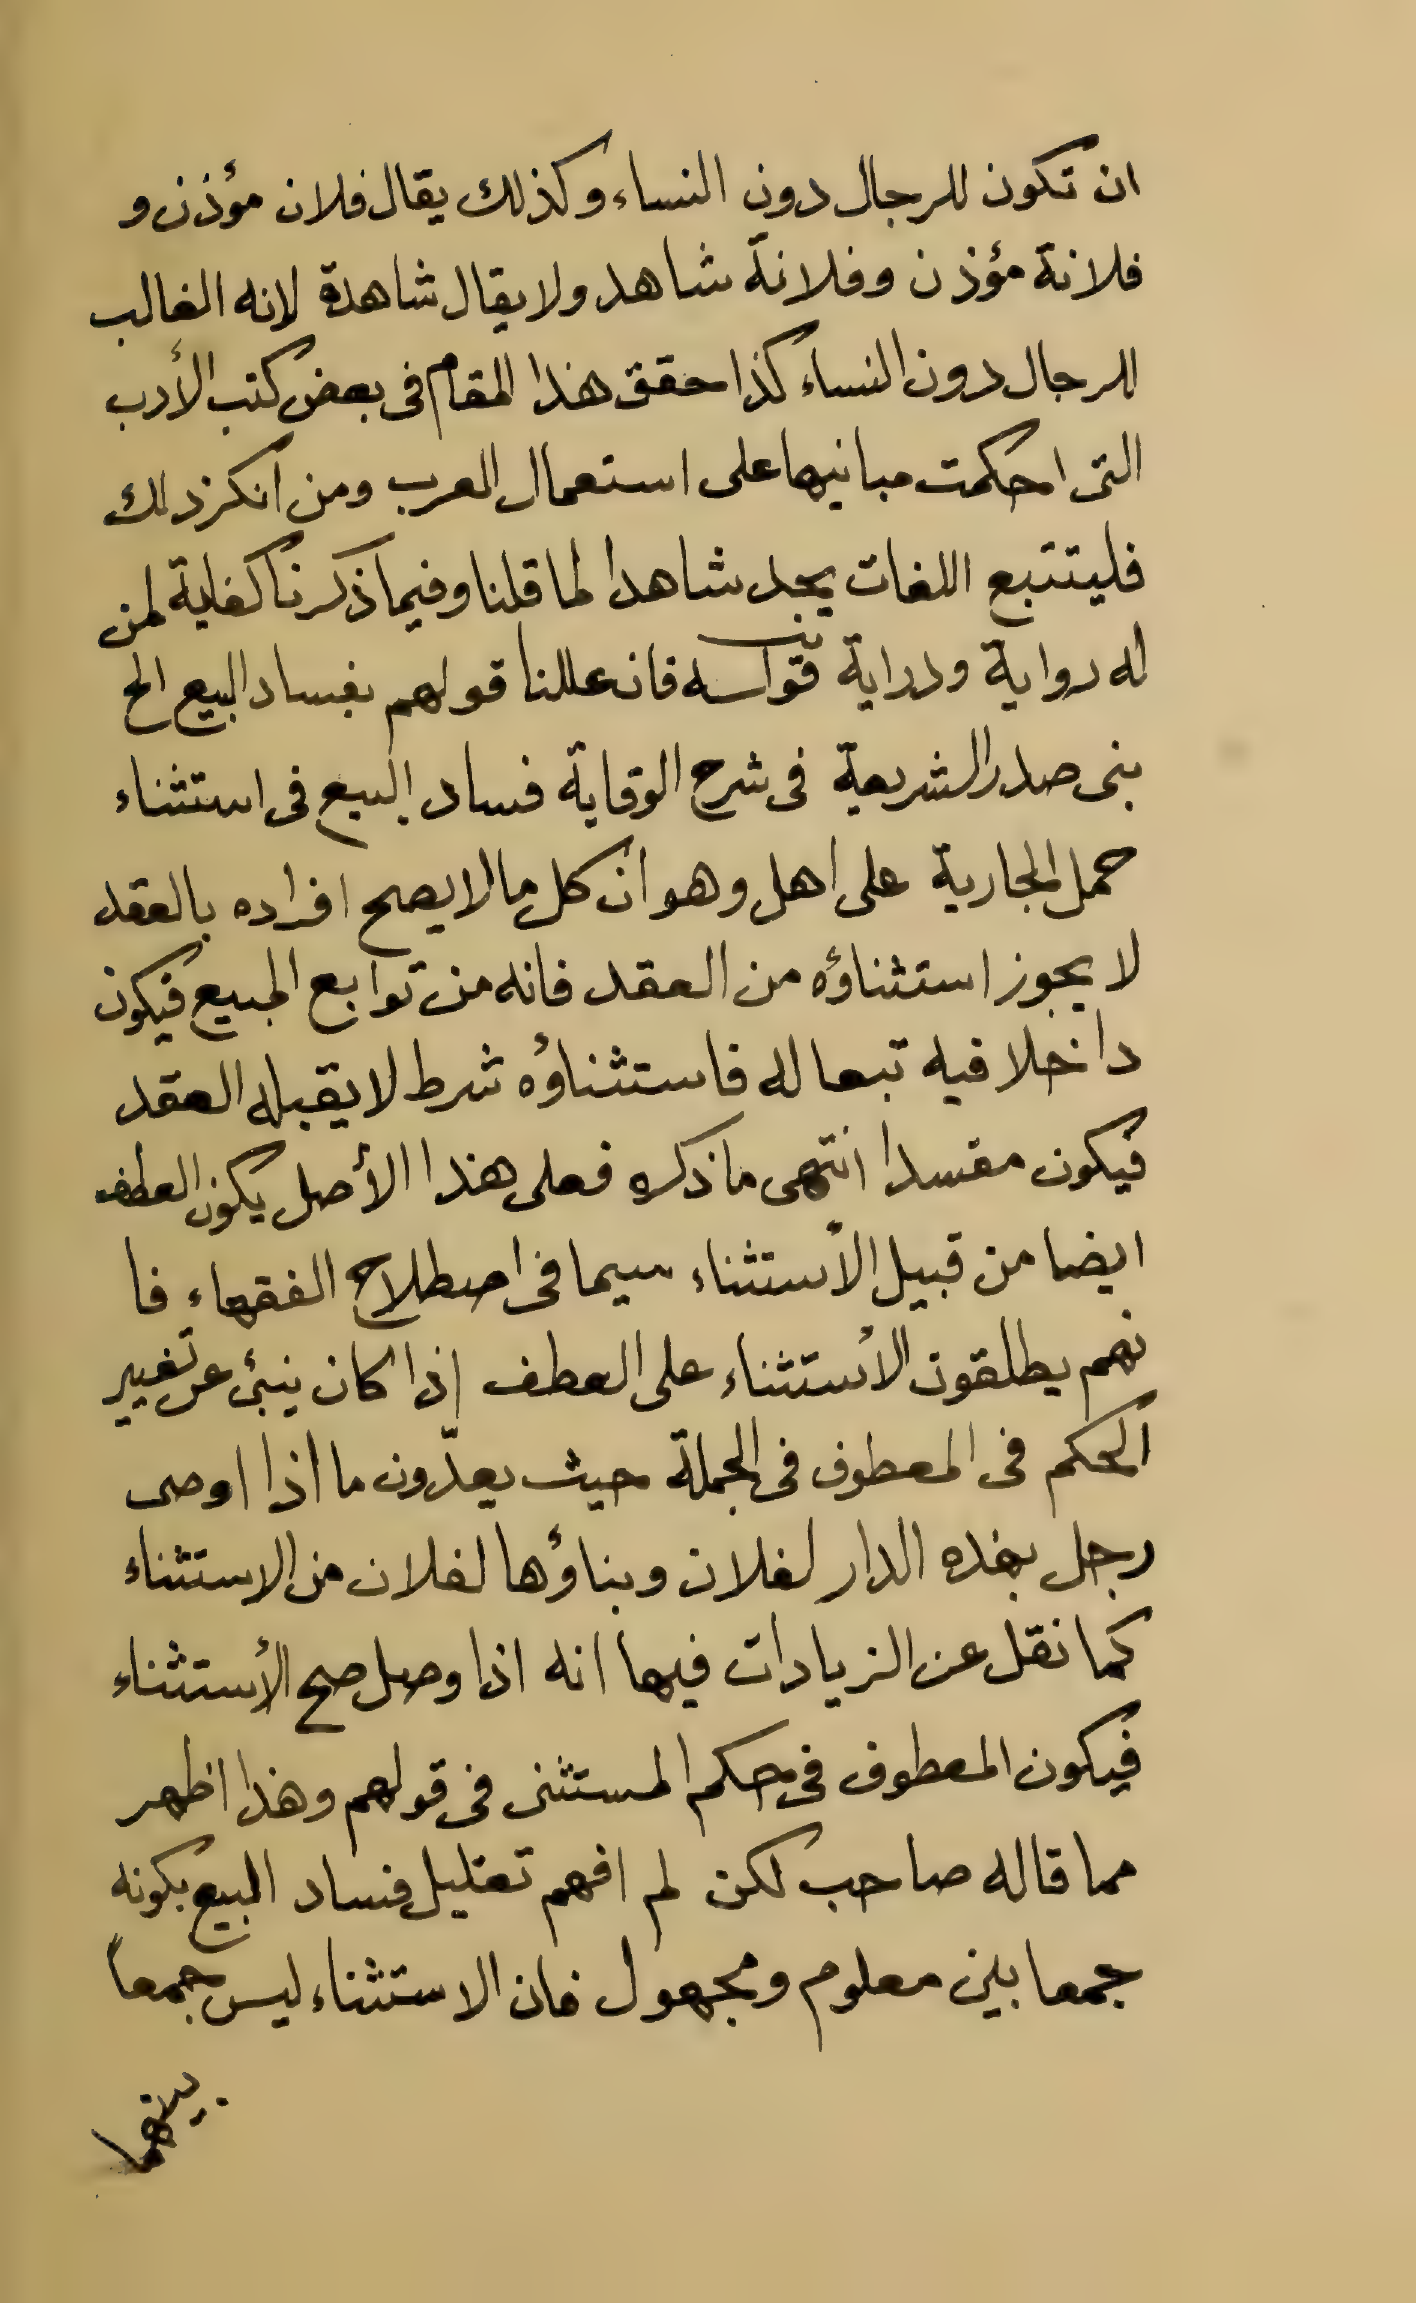 ان تكون للرجال دون النساء وكذلك يقال فلان مؤذن و
فلانة مؤذن وفلانة شاهد ولا يقال شاهدة لانه الغالب
للرجال دون النساء كذا حقق هذا المقام فى بعض كتب الأدب
التى احكمت مبانيها على استعمال العرب ومن انكر ذلك
فليتتبع اللغات يجد شاهدا لما قلنا وفيما ذكرنا كفاية لمن
له رواية ودراية فان عللنا قولهم بفساد البيع الخ
بنى صدر الشريعة فى شرح الوقاية فساد البيع فى استثناء
حمل الجارية على اهل وهو ان كل ما لا يصح افراده بالعقد
لا يجوز استثناؤه من العقد فانه من توابع المبيع فيكون
داخلا فيه تبعا له فاستثناؤه شرط لا يقبله العقد
فيكون مفسدا انتهى ما ذكره فعلى هذا الأصل يكون العطف
ايضا من قبيل الأستثناء سيما فى اصطلاح الفقهاء فا
نهم يطلقون الأستثناء على العطف اذا كان ينبئ عن تغيير
الحكم فى المعطوف فى الجملة حيث يعدّون ما اذا اوصى
رجل بهذه الدار لفلان وبناؤها لفلان من الاستثناء
كما نقل عن الزيادات فيها انه اذا وصل صح الأستثناء
فيكون المعطوف فى حكم المستثنى فى قولهم وهذا اظهر
مما قاله صاحب لكن لم افهم تعليل فساد البيع بكونه
جمعا بين معلوم ومجهول فان الاستثناء ليس جمعاً
بينهما